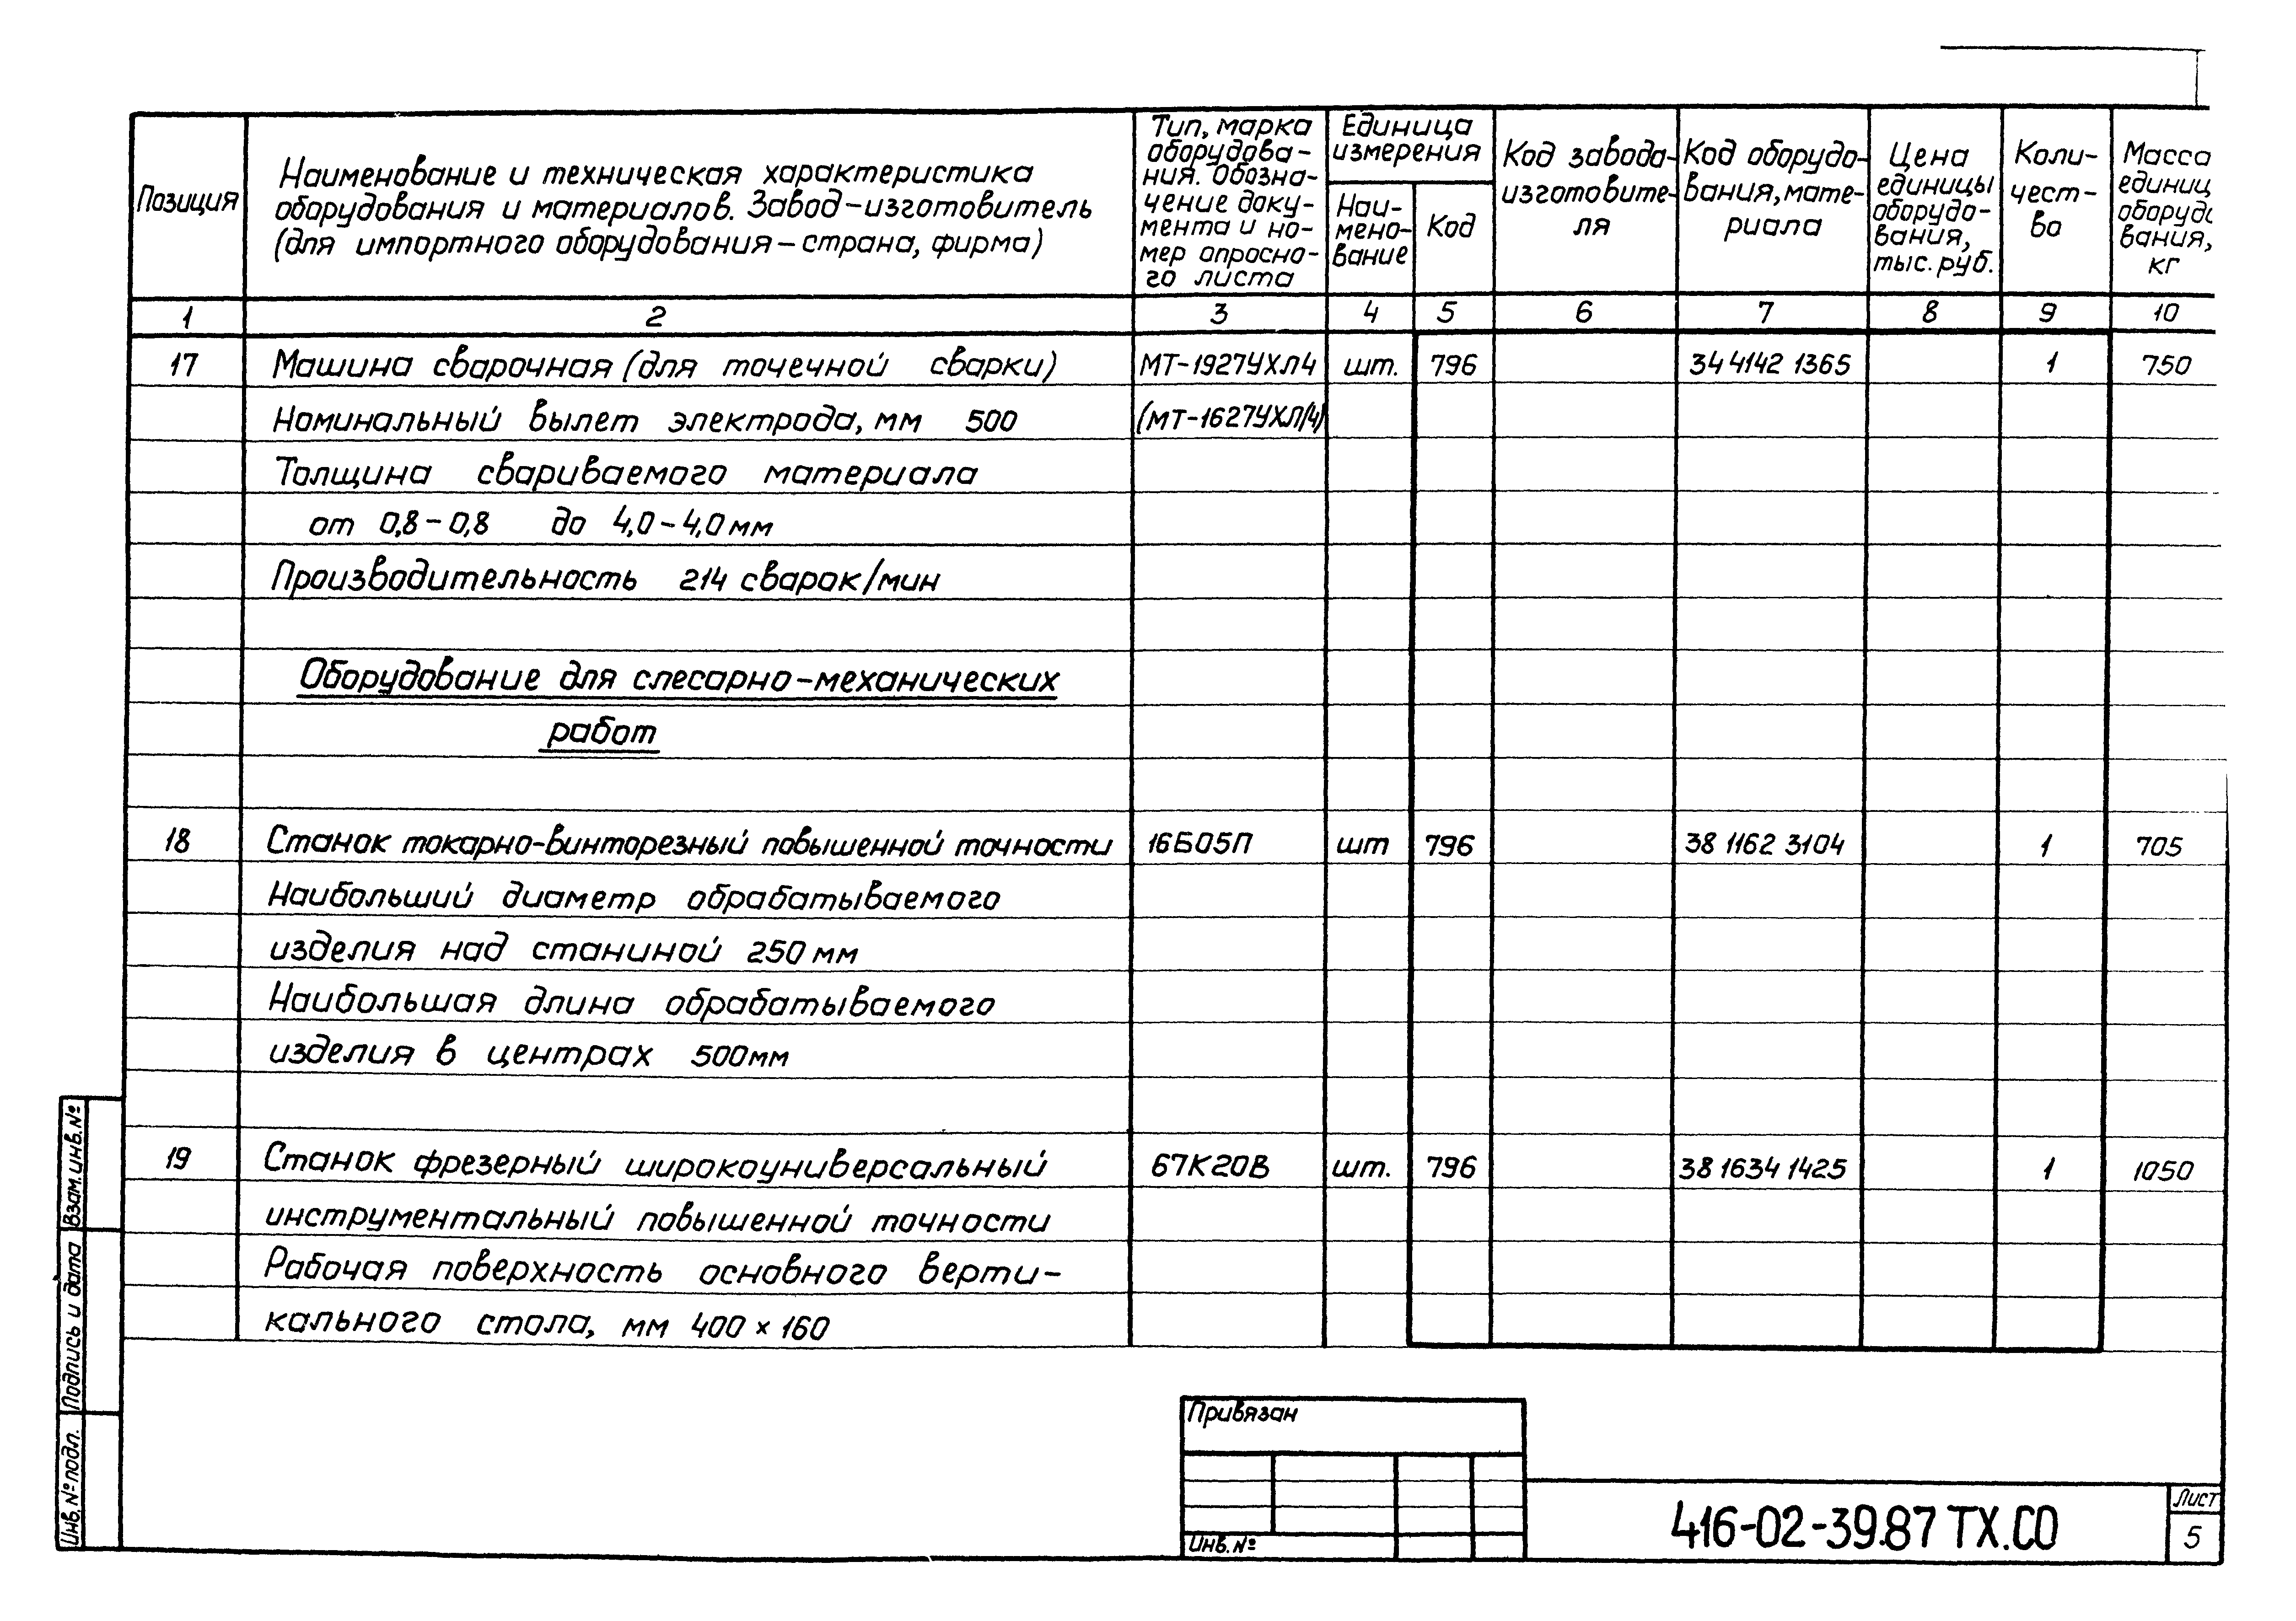 Позиция
Наименование и техническая характеристика
оборудования и материалов. Завод-изготовитель
(для импортного оборудования-страна, фирма)
Тип, марка
оборудова-
ния. Обозна-
чение доку-
мента и но-
мер опросно-
го листа
Единица
измерения
Наи-
мено-
вание
Код
Код завода-
изготовите-
ля
Код оборудо-
вания, мате-
риала
Цена
единицы
оборудо-
вания,
тыс. руб.
Коли-
чест-
во
Масса
единиц
оборудо
вания,
кг
1 2 3 4 5 6 7 8 9 10
17 Машина сварочная (для точечной сварки) МТ-1927УХЛ4 шт. 796 34 4142 1365 1 750
Номинальный вылет электрода, мм 500 (МТ-1627УХЛ4)
Толщина свариваемого материала
от 0,8-0,8 до 4,0-4,0 мм
Производительность 214 сварок/мин
Оборудование для слесарно-механических
работ
18 Станок токарно-винторезный повышенной точности 16Б05П шт 796 38 1162 3104 1 705
Наибольший диаметр обрабатываемого
изделия над станиной 250 мм
Наибольшая длина обрабатываемого
изделия в центрах 500мм
19 Станок фрезерный широкоуниверсальный 67К20В шт. 796 38 1634 1425 1 1050
инструментальный повышенной точности
Рабочая поверхность основного верти-
кального стола, мм 400 × 160
Взам. инв. №
Подпись и дата
Инв. № подл.
Привязан
Инв. №
416-02-39.87 ТХ.СО
Лист
5